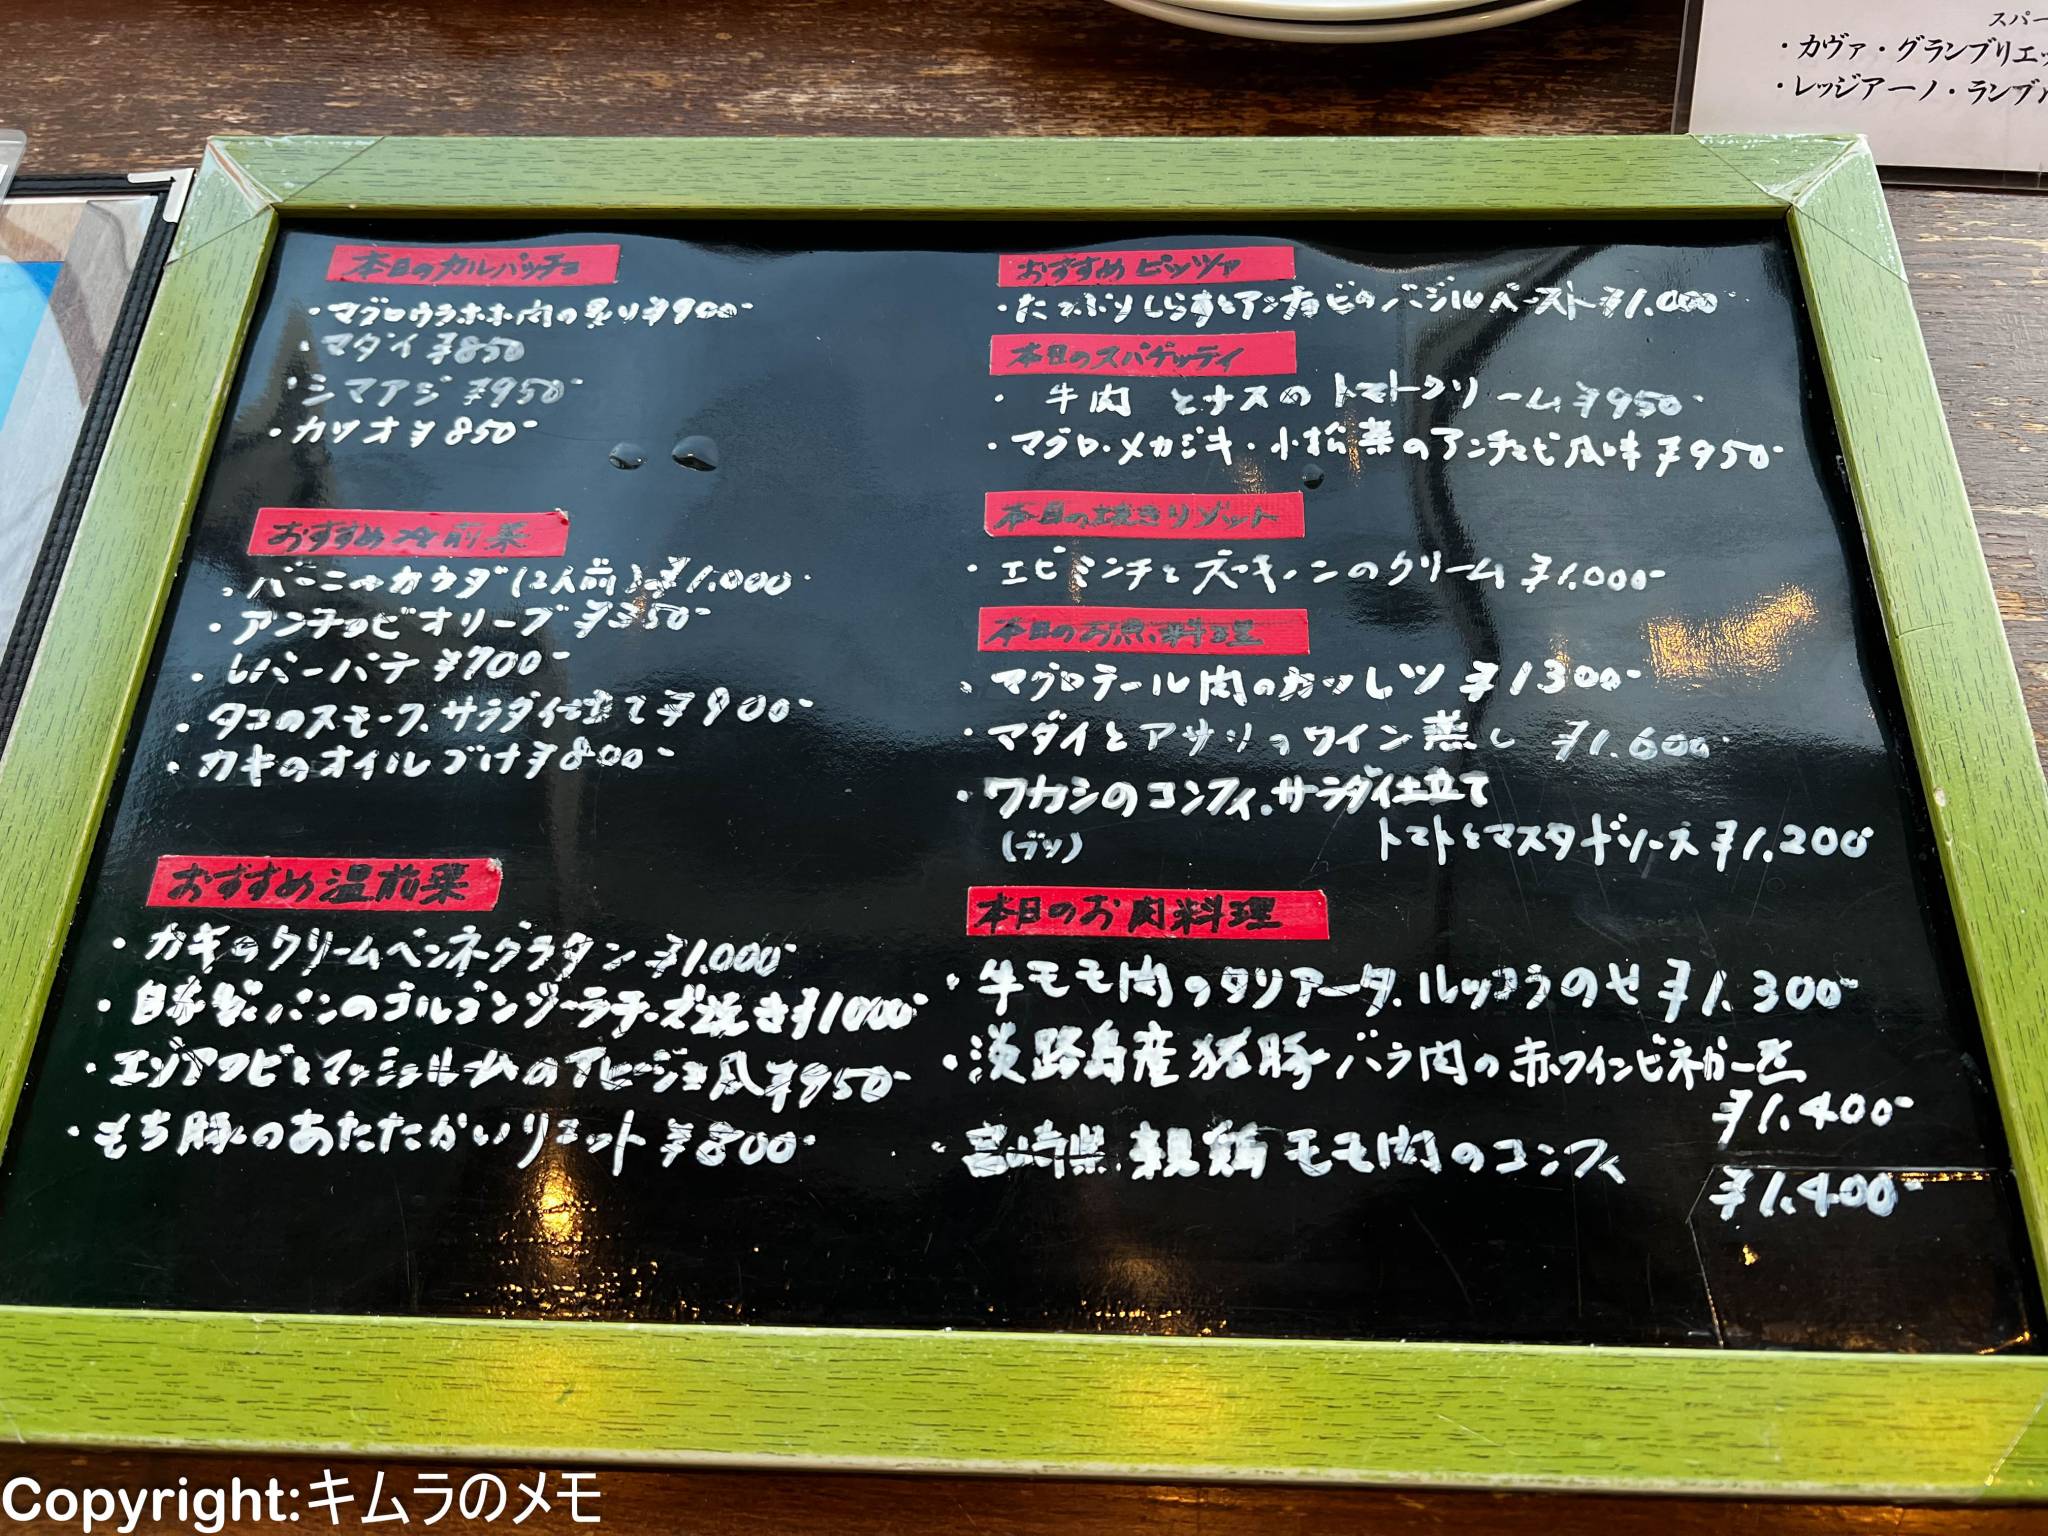 本日のカルパッチョ
・マグロウラホホ肉の炙り ¥900-
・マダイ ¥850
・シマアジ ¥950-
・カツオ ¥850-
おすすめ冷前菜
・バーニャカウダ(2人前) ¥1.000-
・アンチョビオリーブ ¥350-
・レバーパテ ¥700-
・タコのスモーク、サラダ仕立て ¥900-
・カキのオイルづけ ¥800-
おすすめ温前菜
・カキのクリームペンネグラタン ¥1.000-
・自家製パンのゴルゴンゾーラチーズ焼き ¥1000-
・エゾアワビとマッシュルームのアヒージョ風 ¥950-
・もち豚のあたたかいリエット ¥800-
おすすめピッツァ
・たっぷりしらすとアンチョビのバジルペースト ¥1.000-
本日のスパゲッティ
・牛肉とナスのトマトクリーム ¥950-
・マグロ・メカジキ・小松菜のアンチョビ風味 ¥950-
本日の焼きリゾット
・エビミンチとズッキーノンのクリーム ¥1.000-
本日のお魚料理
・マグロテール肉のカツレツ ¥1300-
・マダイとアサリのワイン蒸し ¥1.600-
・ワカシのコンフィ、サラダ仕立て
(ブリ) トマトとマスタードソース ¥1.200
本日のお肉料理
・牛モモ肉のタリアータ、ルッコラのせ ¥1.300-
・淡路島産猪豚バラ肉の赤ワインビネガー煮
¥1.400-
・宮崎県親鶏モモ肉のコンフィ
¥1.400-
スパー
・カヴァ・グランブリエッ
・レッジアーノ・ランブル
Copyright:キムラのメモ